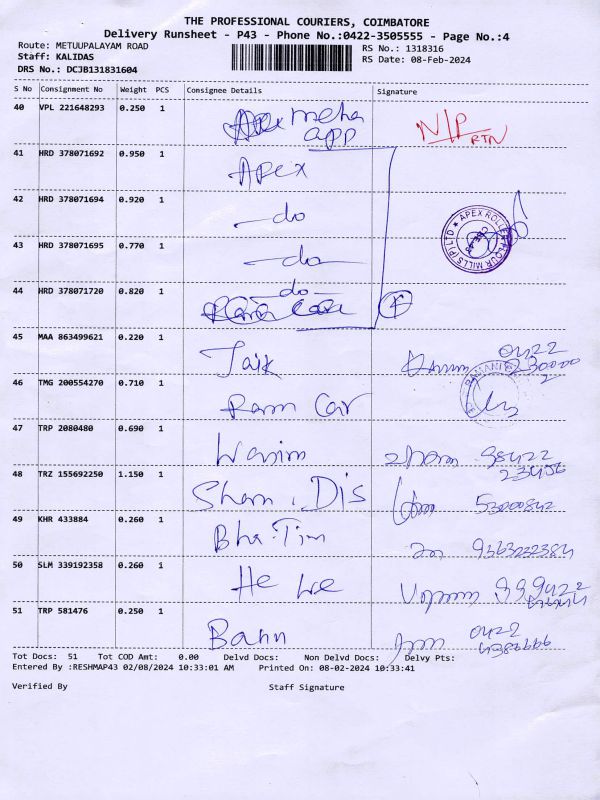 THE PROFESSIONAL COURIERS, COIMBATORE
Delivery Runsheet - P43 - Phone No.:0422-3505555 - Page No.:4
Route: METUUPALAYAM ROAD
RS No.: 1318316
Staff: KALIDAS
RS Date: 08-Feb-2024
DRS No.: DCJB131831604
S No Consignment No Weight PCS Consignee Details Signature
40 VPL 221648293 0.250 1 meha app N/P RTN
41 HRD 378071692 0.950 1 Apex
42 HRD 378071694 0.920 1 -do
43 HRD 378071695 0.770 1 -do-
APEX ROLLER FLOUR MILLS (P) LTD
44 HRD 378071720 0.820 1 -do- 4
45 MAA 863499621 0.220 1 0422
46 TMG 200554270 0.710 1 Ram Car
47 TRP 2080480 0.690 1
48 TRZ 155692250 1.150 1 Sham. Dis
49 KHR 433884 0.260 1
50 SLM 339192358 0.260 1
51 TRP 581476 0.250 1 0422
Tot Docs: 51 Tot COD Amt: 0.00 Delvd Docs: Non Delvd Docs: Delvy Pts:
Entered By :RESHMAP43 02/08/2024 10:33:01 AM Printed On: 08-02-2024 10:33:41
Verified By Staff Signature